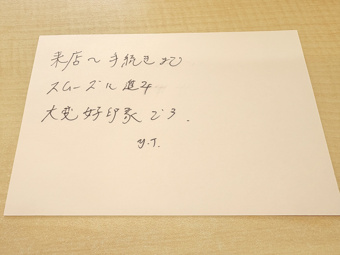 来店〜手続きまで
スムーズに進み
大変好印象です.
y.T.